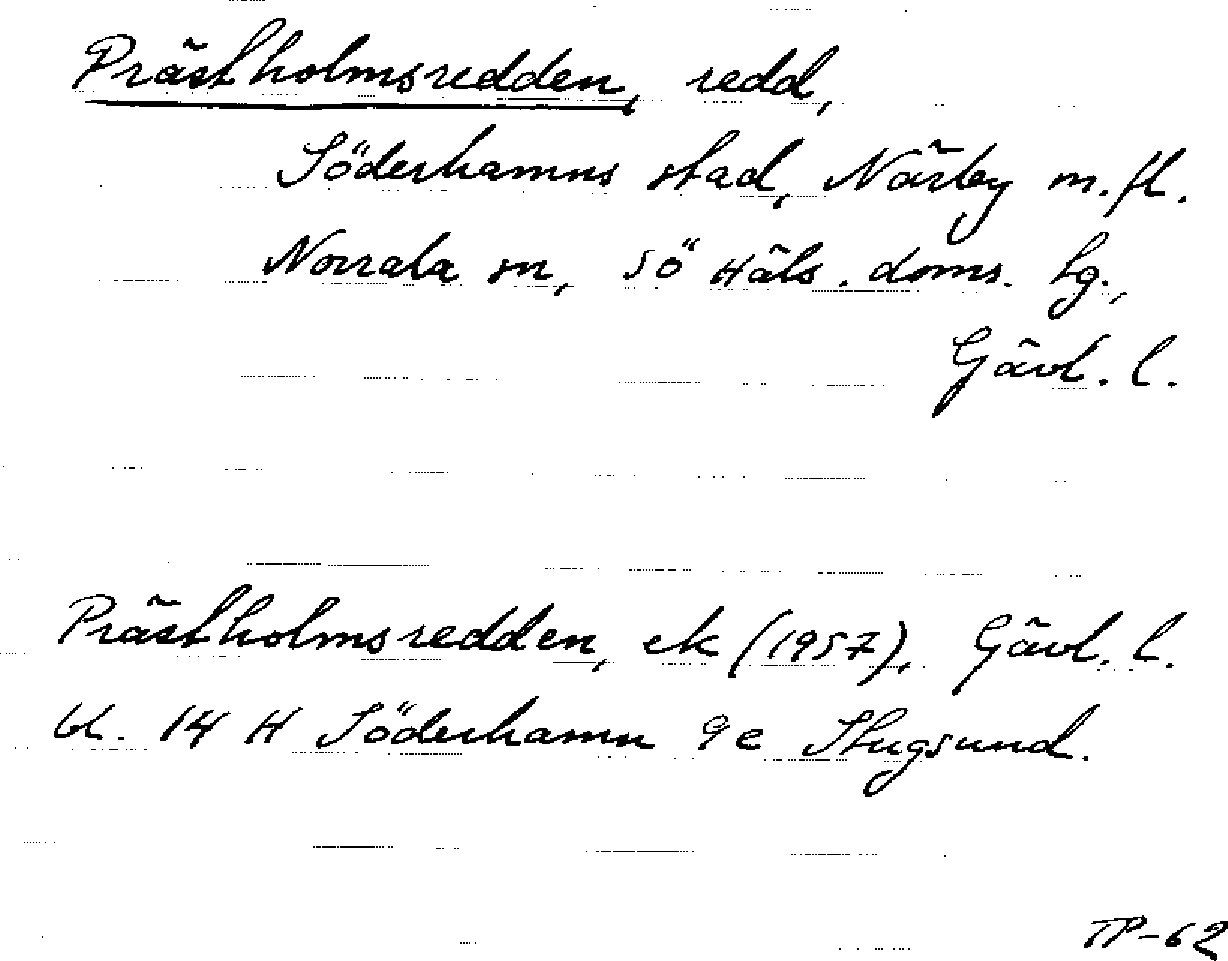 Prästholmsredden, redd,
Söderhamns stad, Närby m.fl.
Norrala sn, Sö Häls. doms. hg.,
Gävl. l.
Prästholmsredden, ek (1957), Gävl. l.
bl. 14 H Söderhamn 9e Stugsund.
TP-62